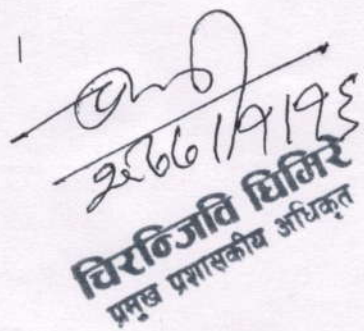 २०७७।१।१६
चिरन्जिवि घिमिरे
प्रमुख प्रशासकीय अधिकृत